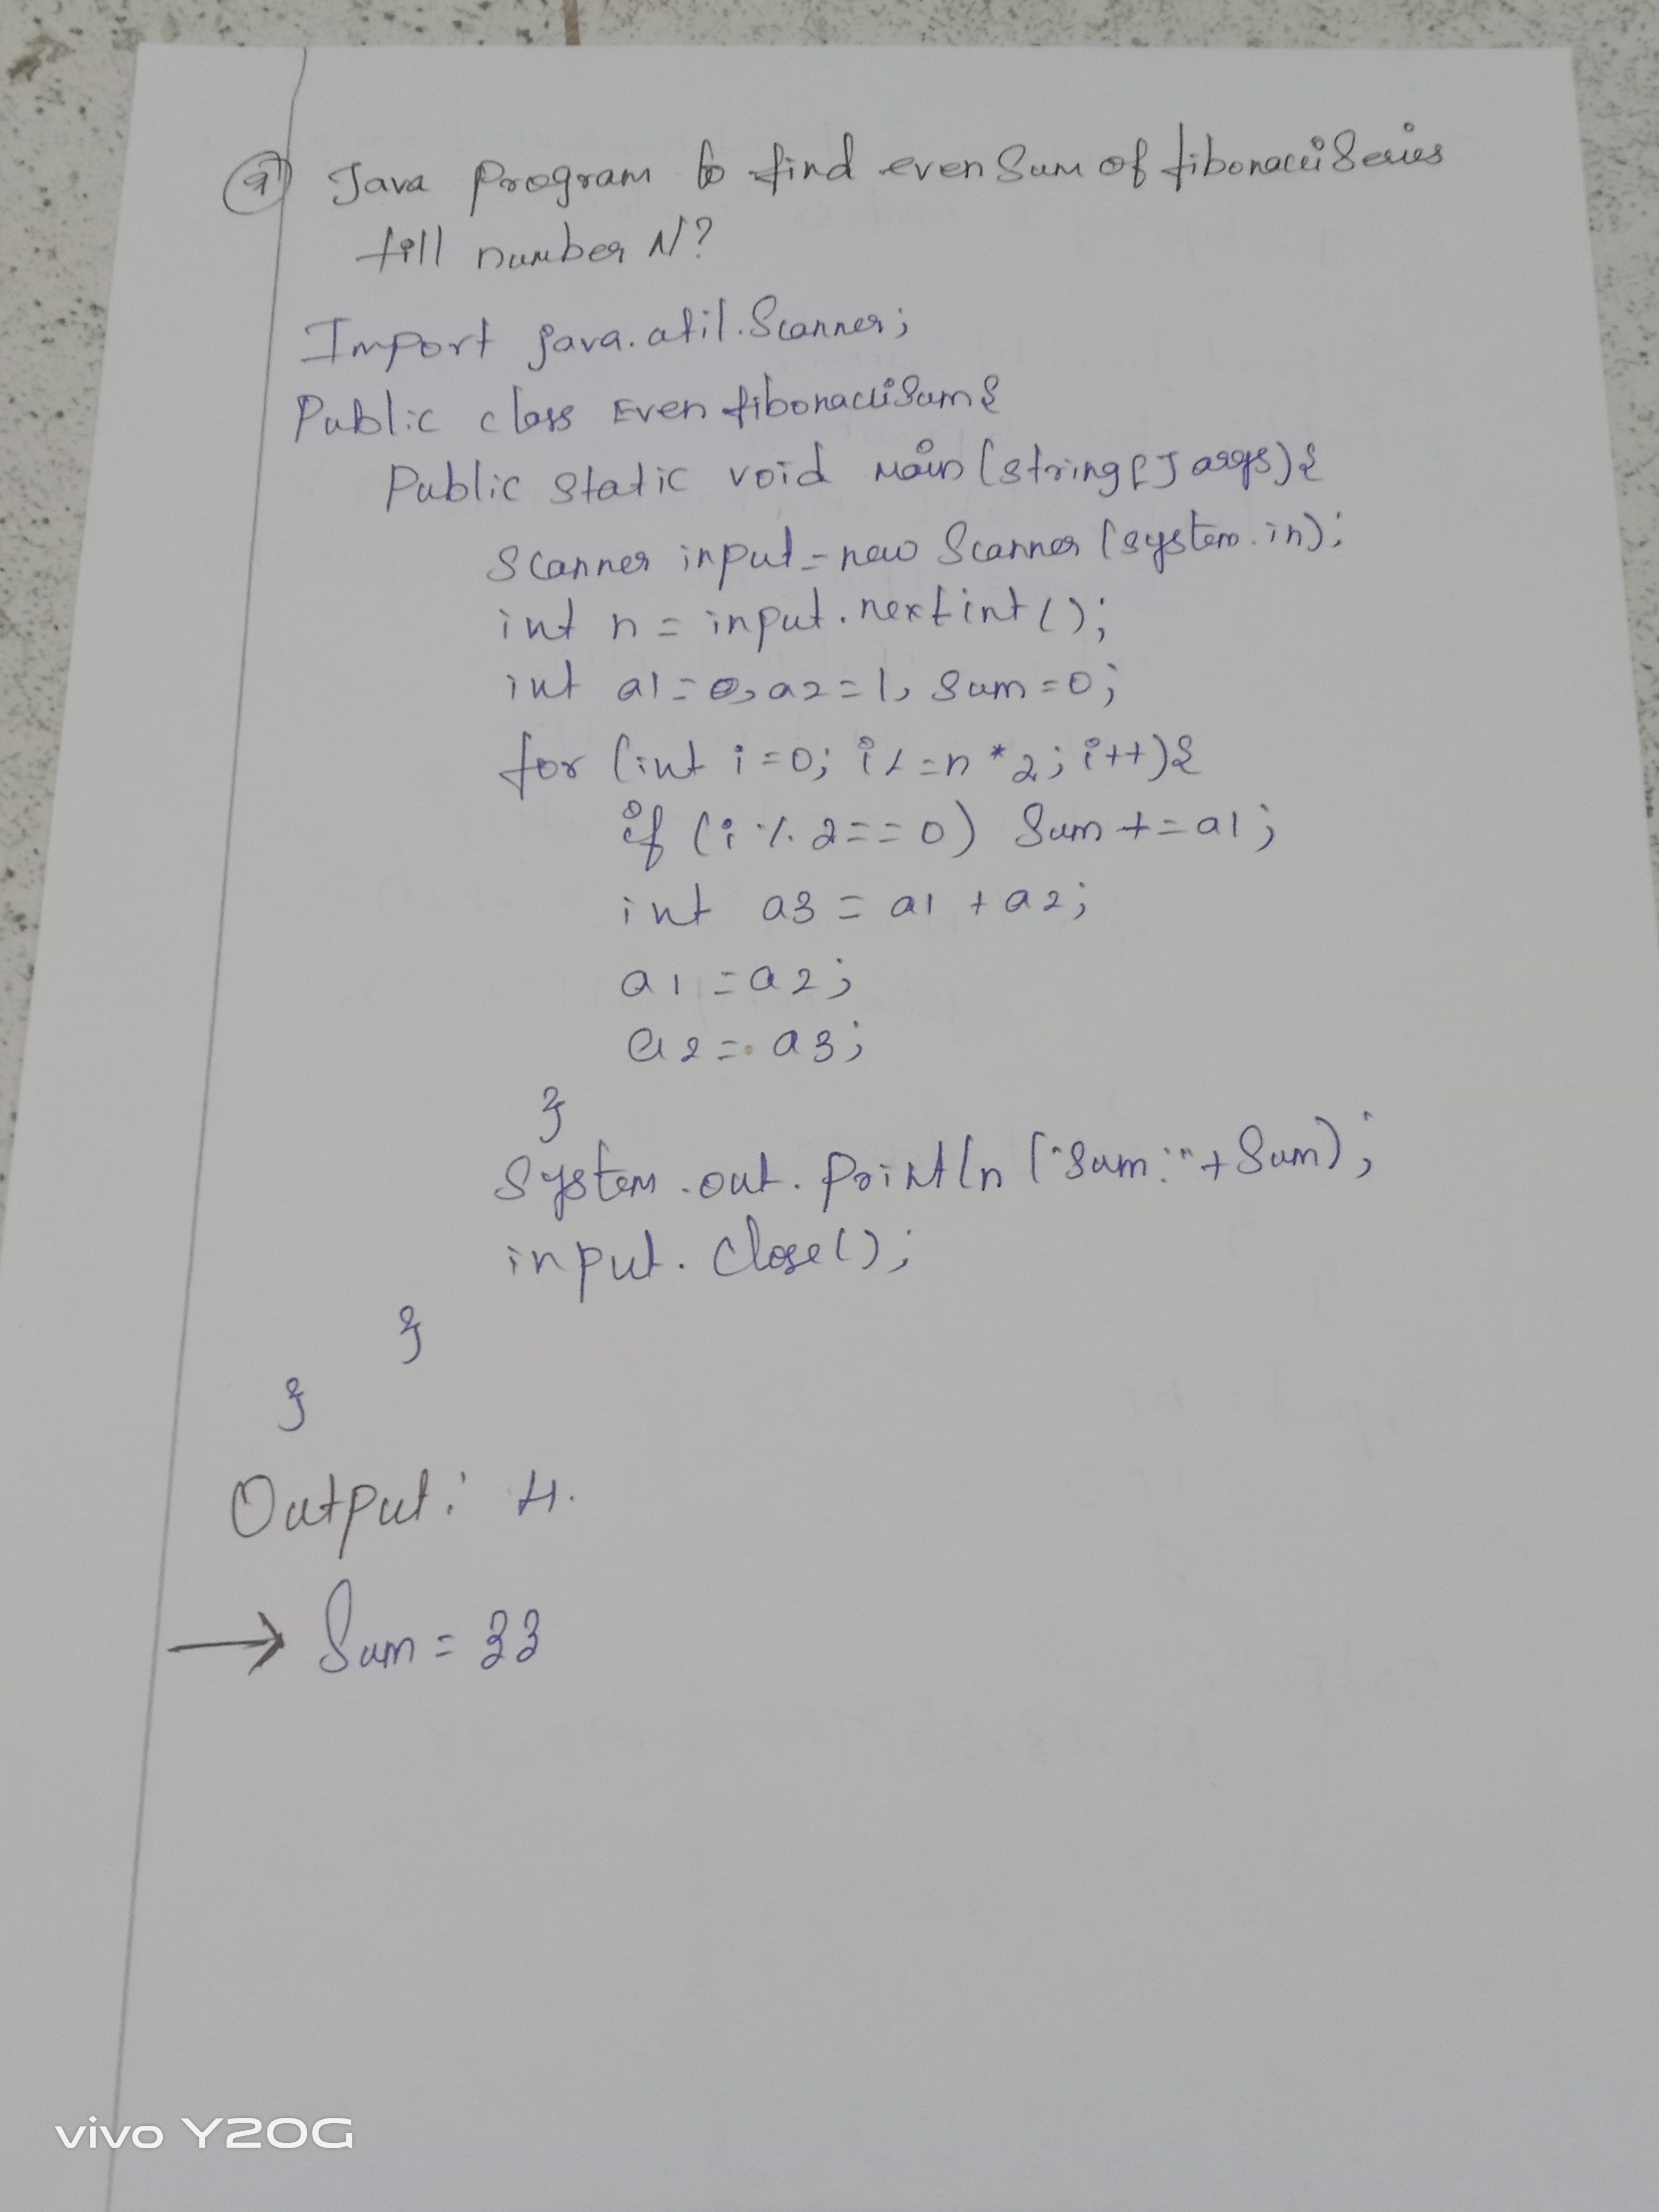 9) Java Program to find even Sum of fibonacci Series
till number N?
Import java.util.Scanner;
Public class Even fibonacciSum{
Public static void main (string[] args){
Scanner input = new Scanner (system.in);
int n = input.nextint();
int a1=0, a2=1, sum=0;
for (int i=0; i<=n*2; i++){
if (i%2==0) Sum+=a1;
int a3 = a1 + a2;
a1 = a2;
a2 = a3;
}
System.out.println ("Sum:"+Sum);
input.close();
}
}
Output: 4.
→ Sum = 33
vivo Y20G